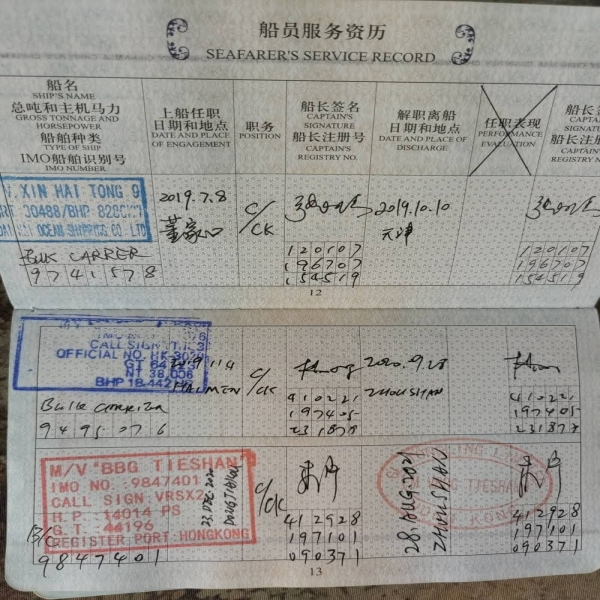 船员服务资历
SEAFARER'S SERVICE RECORD
船名
SHIP'S NAME
总吨和主机马力
GROSS TONNAGE AND
HORSEPOWER
船舶种类
TYPE OF SHIP
IMO船舶识别号
IMO NUMBER
上船任职
日期和地点
DATE AND PLACE
OF ENGAGEMENT
职务
POSITION
船长签名
CAPTAIN'S
SIGNATURE
船长注册号
CAPTAIN'S
REGISTRY NO.
解职离船
日期和地点
DATE AND PLACE OF
DISCHARGE
任职表现
PERFORMANCE
EVALUATION
船长签名
CAPTAIN'S
SIGNATURE
船长注册号
CAPTAIN'S
REGISTRY NO.
XIN HAI TONG 9
OCEAN SHIPPING CO. LTD
CARRER
9741578
2019.7.8
董家口
C/CK
120107
196707
154519
2019.10.10
天津
120107
196707
154519
12
CALL SIGN
OFFICIAL NO. HK-
GT
NT 38,006
BHP 18,442
Bulk
9495076
C/CK
410221
197405
231878
2020.9.28
ZHOUSHAN
410221
197405
23187
M/V "BBG TIESHAN"
IMO NO. :9847401
CALL SIGN:VRSX2
H.P. :14014 PS
G.T. :44196
REGISTER PORT:HONGKONG
B/C
9847401
C/CK
412928
197101
090371
28.AUG.2021
ZHOUSHAN
TIESHAN
412928
197101
090371
13